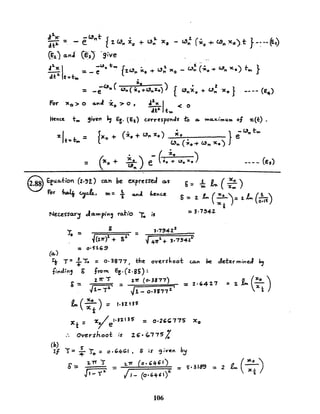 d²x/dt² = - e^(-ωₙt) { 2 ωₙ ẋ₀ + ωₙ² x₀ - ωₙ² (ẋ₀ + ωₙ x₀) t } ---- (E₂)
(E₂) and (E₃) give
d²x/dt² |t=tₘ = - e^(-ωₙ tₘ) { 2 ωₙ ẋ₀ + ωₙ² x₀ - ωₙ² (ẋ₀ + ωₙ x₀) tₘ }
= - e^(-ωₙ (ẋ₀ / ωₙ(ẋ₀ + ωₙ x₀))) { ωₙ ẋ₀ + ωₙ² x₀ } ---- (E₄)
For x₀ > 0 and ẋ₀ > 0, d²x/dt² |tₘ < 0
Hence tₘ given by Eq. (E₃) corresponds to a maximum of x(t).
x|t=tₘ = { x₀ + (ẋ₀ + ωₙ x₀) ẋ₀ / ωₙ (ẋ₀ + ωₙ x₀) } e^(-ωₙ tₘ)
= (x₀ + ẋ₀/ωₙ) e^(-(ẋ₀ / (ẋ₀ + ωₙ x₀))) ---- (E₅)
2.88 Equation (2.92) can be expressed as δ = 1/m ln (x₀/xₘ)
For half cycle, m = 1/2 and hence δ = 2 ln (x₀/x½) = 2 ln (1/0.15)
= 3.7942
Necessary damping ratio ζ₀ is
ζ₀ = δ / √((2π)² + δ²) = 3.7942 / √(4π² + 3.7942²)
= 0.5169
(a)
If ζ = 3/4 ζ₀ = 0.3877, the overshoot can be determined by
finding δ from Eq. (2.85):
δ = 2 π ζ / √(1-ζ²) = 2π (0.3877) / √(1 - 0.3877²) = 2.6427 = 2 ln (x₀/x½)
ln (x₀/x½) = 1.32135
x½ = x₀/e^1.32135 = 0.266775 x₀
∴ Overshoot is 26.6775 %
(b)
If ζ = 5/4 ζ₀ = 0.6461, δ is given by
δ = 2π ζ / √(1 - ζ²) = 2π (0.6461) / √(1 - (0.6461)²) = 5.3189 = 2 ln (x₀/x½)
106